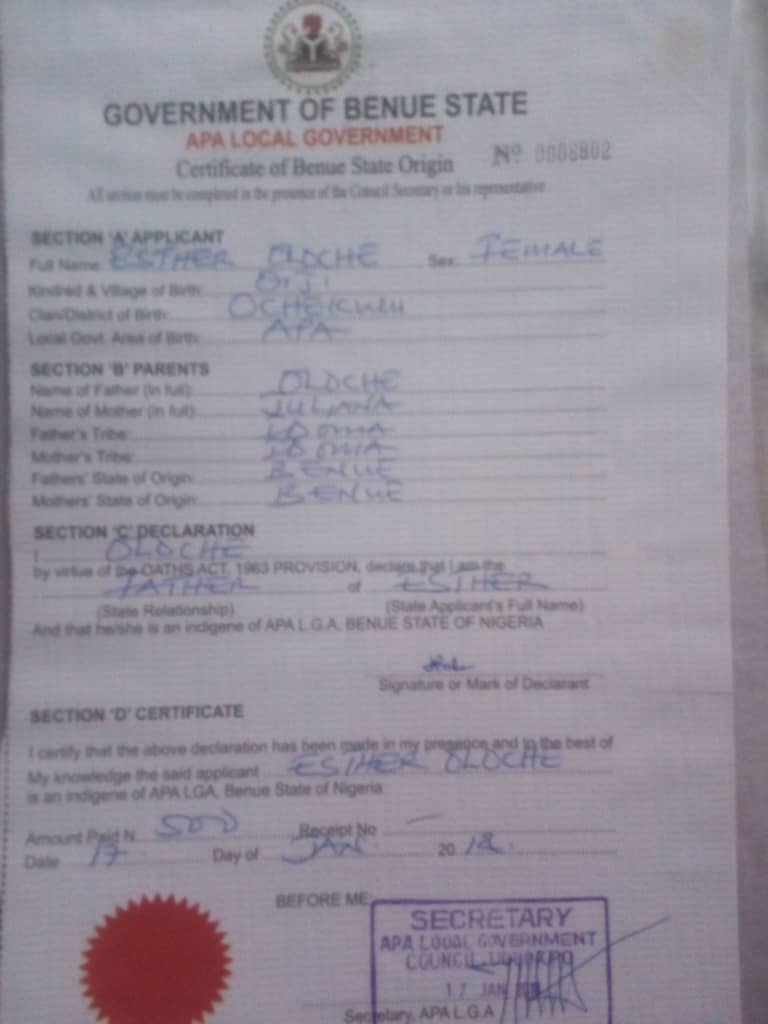 GOVERNMENT OF BENUE STATE
APA LOCAL GOVERNMENT
Certificate of Benue State Origin Nº 0008802
All section must be completed in the presence of the Council Secretary or his representative
SECTION 'A' APPLICANT
Full Name: ESTHER OLOCHE Sex: FEMALE
Kindred & Village of Birth: OIJI
Clan/District of Birth: OCHEKWU
Local Govt. Area of Birth: APA
SECTION 'B' PARENTS
Name of Father (in full): OLOCHE
Name of Mother (in full): JULIANA
Father's Tribe: IDOMA
Mother's Tribe: IDOMA
Fathers' State of Origin: BENUE
Mothers' State of Origin: BENUE
SECTION 'C' DECLARATION
I OLOCHE
by virtue of the OATHS ACT, 1963 PROVISION, declare that I am the
FATHER of ESTHER
(State Relationship) (State Applicant's Full Name)
And that he/she is an indigene of APA L.G.A. BENUE STATE OF NIGERIA
Signature or Mark of Declarant
SECTION 'D' CERTIFICATE
I certify that the above declaration has been made in my presence and to the best of
My knowledge the said applicant ESTHER OLOCHE
is an indigene of APA LGA, Benue State of Nigeria
Amount Paid N 500 Receipt No –
Date 17 Day of JAN 2018.
BEFORE ME:
SECRETARY
APA LOCAL GOVERNMENT
COUNCIL
17 JAN
Secretary, APA L.G.A